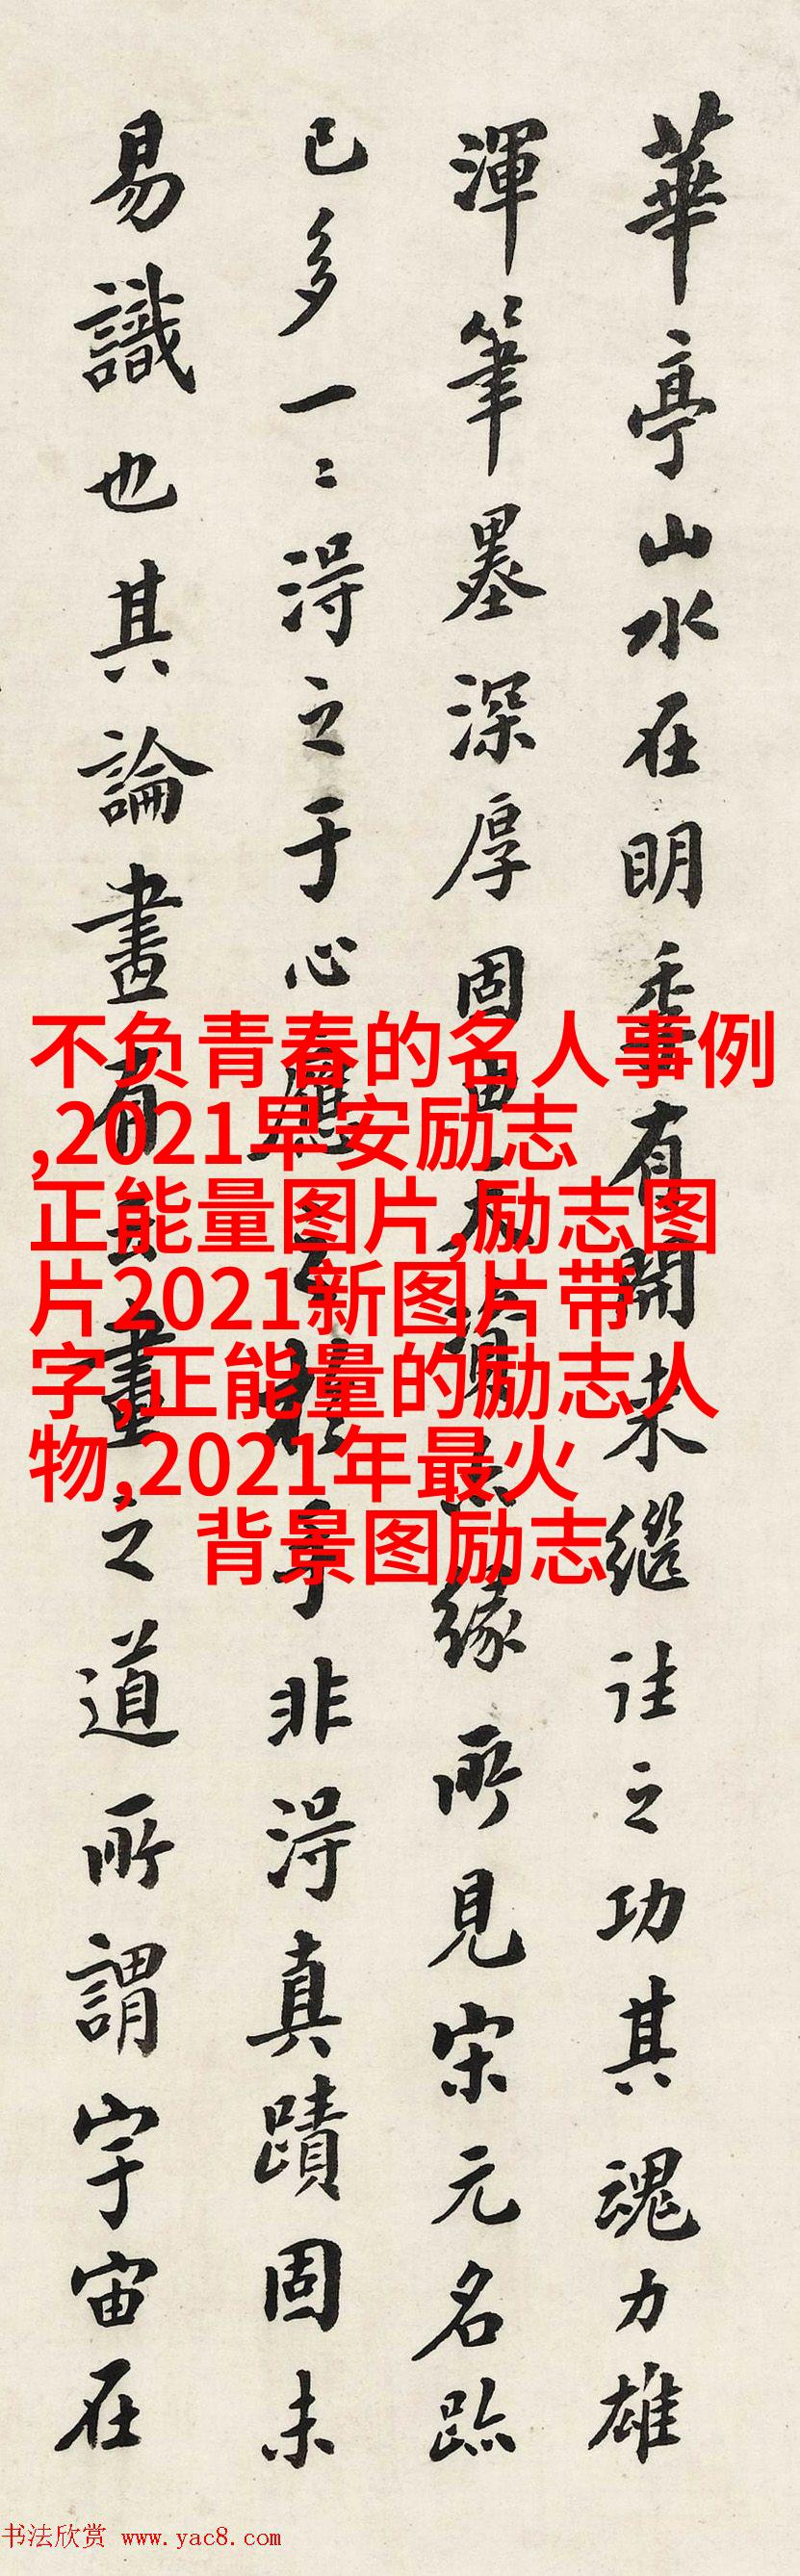 華亭山水在明季有開来継往之功其魂力雄
渾筆墨深厚固由天資亦縁所見宋元名跡
已多一〻淂之于心應之於手非淂真蹟固未
易識也其論畫有云畫之道所謂宇宙在
不负青春的名人事例
,2021早安励志
正能量图片,励志图
片2021新图片带
字,正能量的励志人
物,2021年最火
背景图励志
书法欣赏 www.yac8.com